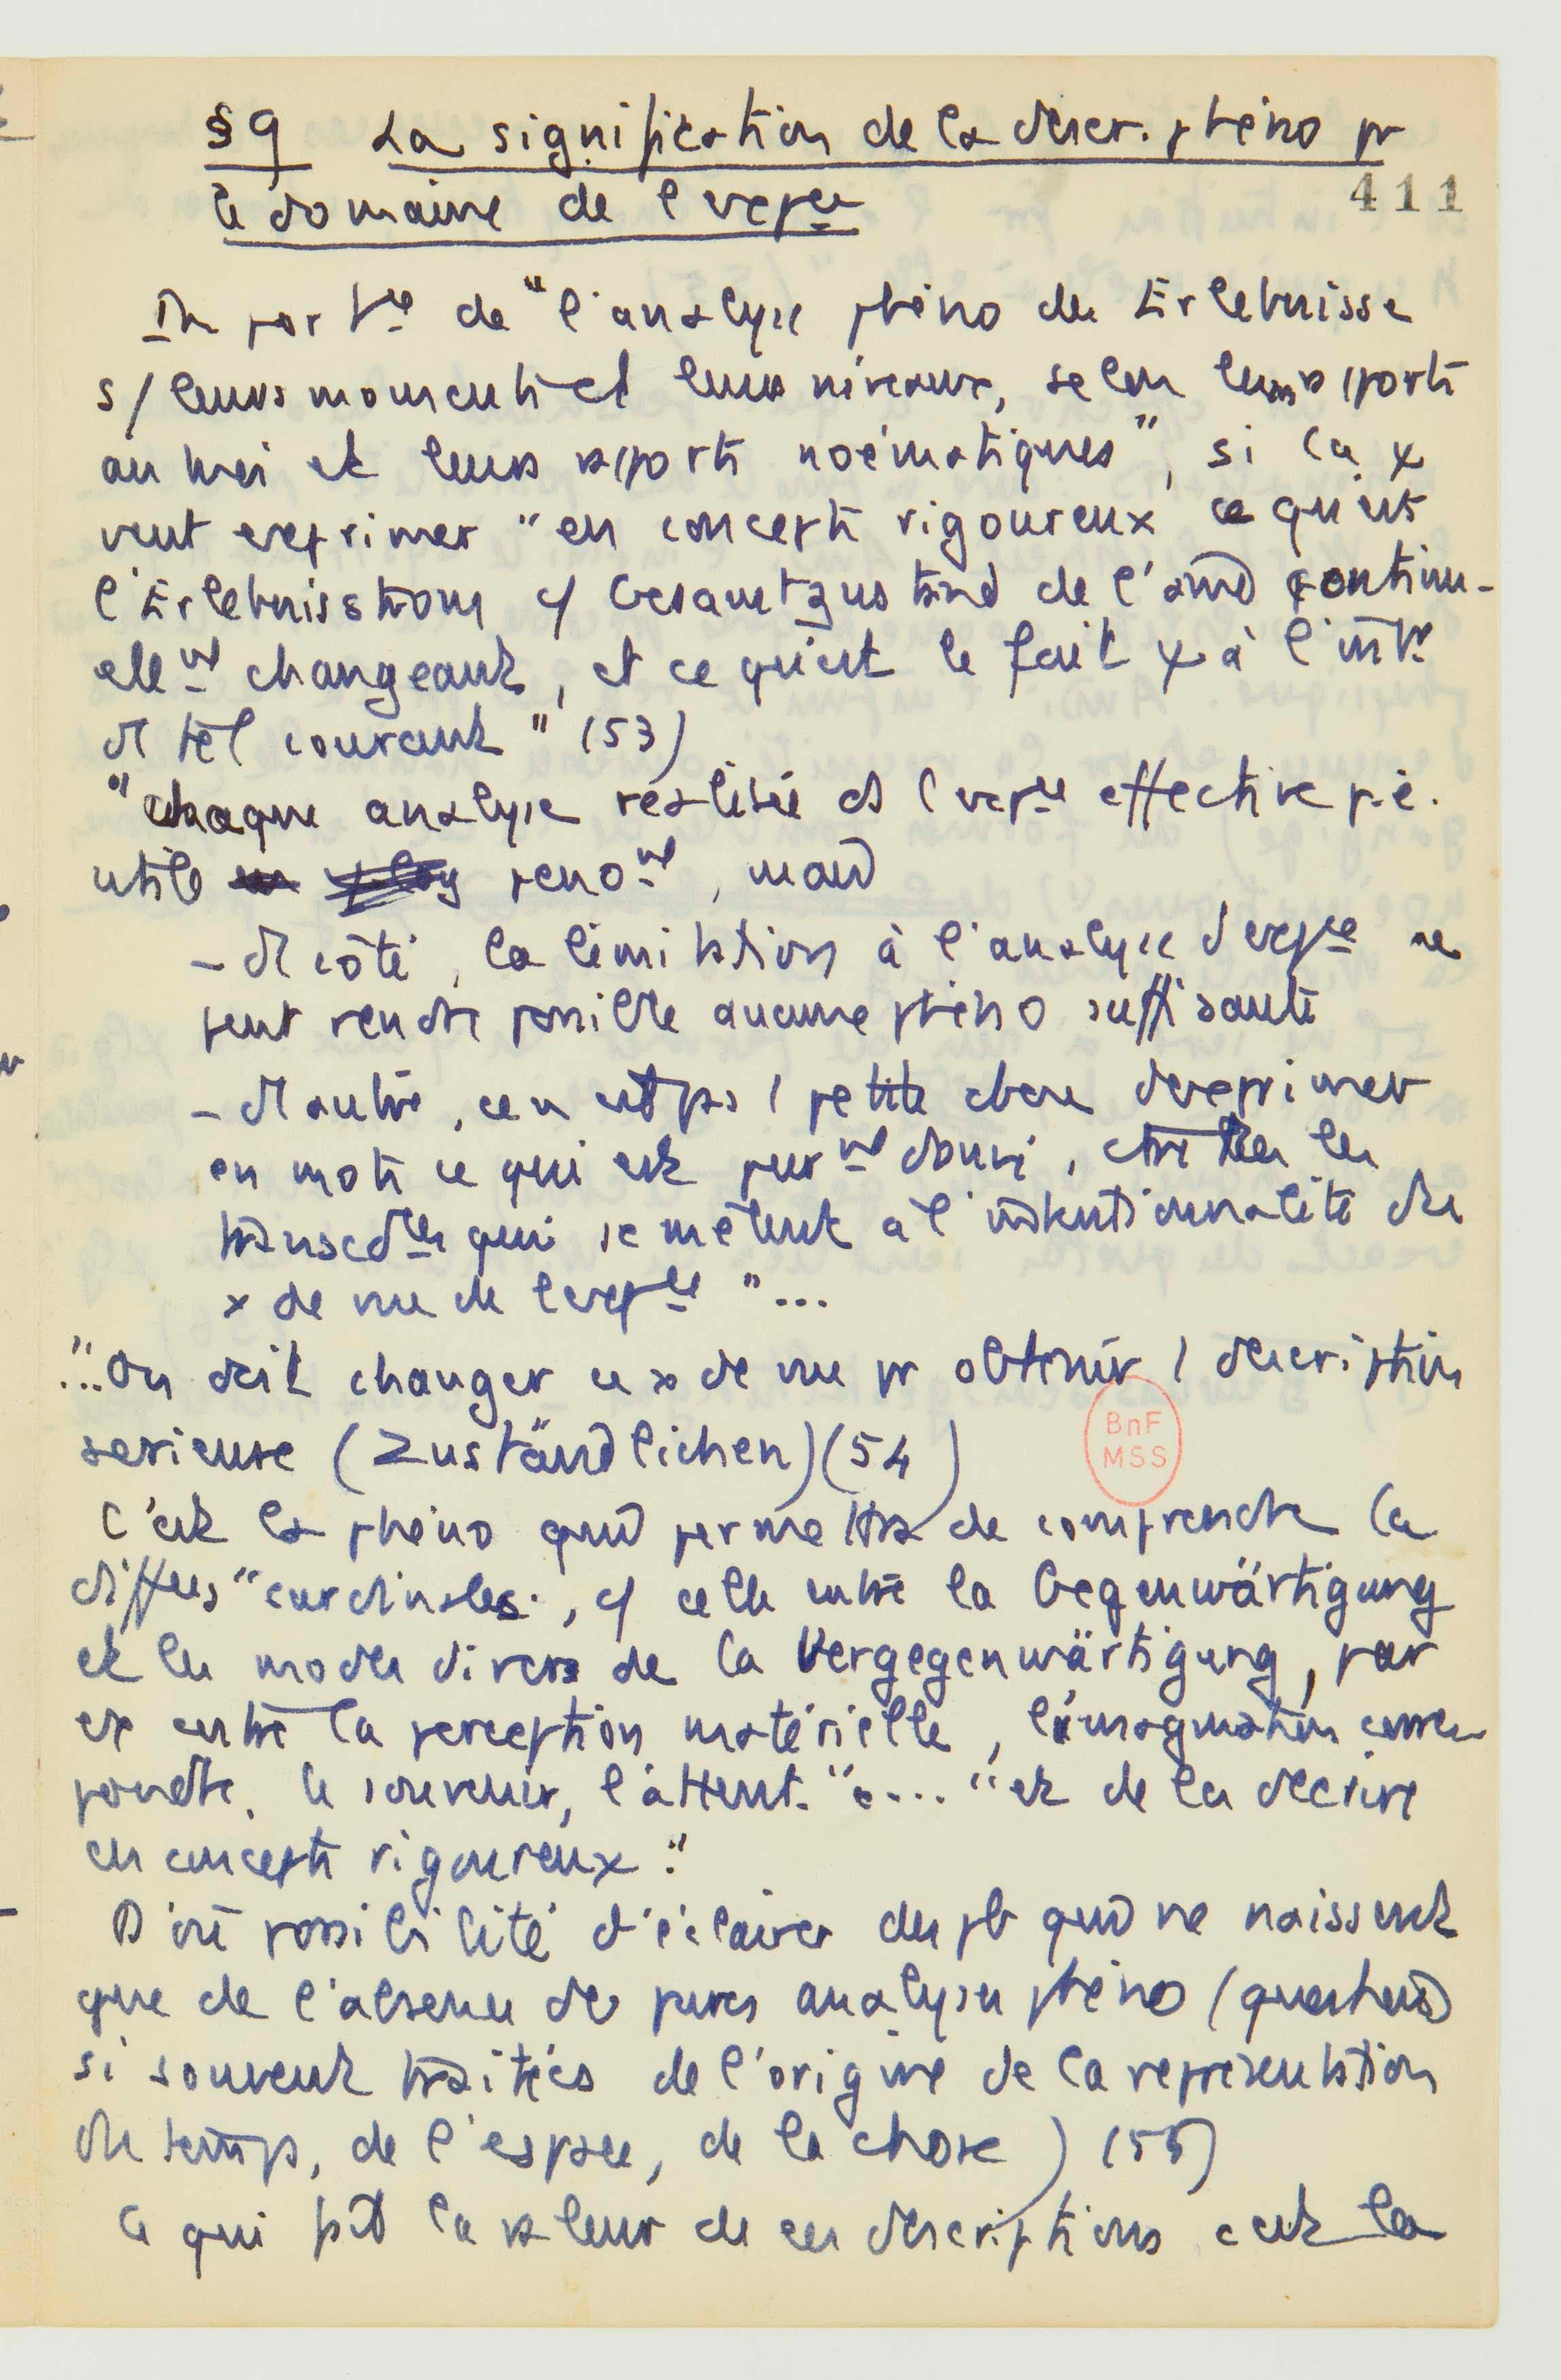 §9 La signification de la descr. phéno pr
411
le domaine de l'expce
de "l'analyse phéno des Erlebnisse
s/ leurs moments et leurs niveaux, selon leurs rpports
au moi et leurs rpports noématiques", si la ψ
veut exprimer "en concepts rigoureux ce qu'est
l'Erlebnisstrom cf Gesamtzustand de l'âme continu-
ellemt changeant, et ce qu'est le fait ψ à l'intr
d'1 tel courant" (53)
"chaque analyse réalisée ds l'expce effective p.ê.
utile penomt, mais
- d'1 côté, la limitation à l'analyse d'expce ne
peut rendre possible aucune phéno suffisante
- d'1 autre, ce n'est pas 1 petite chose d'exprimer
en mots ce qui est purmt donné, ctre ttes les
transcdces qui se mêlent à l'intentionnalité du
x de vue de l'expce "...
"...On doit changer ce x de vue pr obtenir 1 description
serieuse (Zuständlichen) (54)
BnF
MSS
C'est la phéno qui permettra de comprendre la
diffces "cardinales", cf celle entre la Gegenwärtigung
et les modes divers de la Vergegenwärtigung, par
ex entre la perception matérielle, l'imagination corres-
pondte, le souvenir, l'attent. "e... "et de les décrire
en concepts rigoureux."
D'où possibilité d'éclairer des pb qui ne naissent
que de l'absence de pures analyses phéno (questions
si souvent traitées de l'origine de la représentation
du temps, de l'espace, de la chose) (55)
Ce qui fait la valeur de ces descriptions c'est la